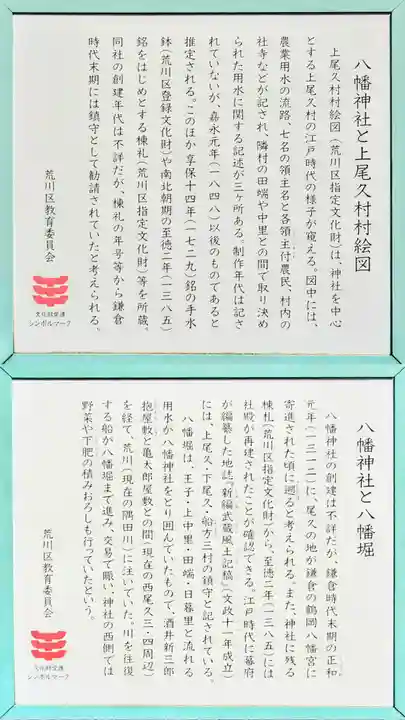 八幡神社と上尾久村村絵図
上尾久村村絵図(荒川区指定文化財)は、神社を中心
とする上尾久村の江戸時代の様子が窺える。図中には、
農業用水の流路、七名の領主名と各領主付農民、村内の
社寺などが記され、隣村の田端や中里との間で取り決め
られた用水に関する記述が三ヶ所ある。制作年代は記さ
れていないが、嘉永元年(一八四八)以後のものであると
推定される。このほか享保十四年(一七二九)銘の手水
鉢(荒川区登録文化財)や南北朝期の至徳二年(一三八五)
銘をはじめとする棟札(荒川区指定文化財)等を所蔵。
同社の創建年代は不詳だが、棟札の年号等から鎌倉
時代末期には鎮守として勧請されていたと考えられる。
荒川区教育委員会
文化財愛護
シンボルマーク
八幡神社と八幡堀
八幡神社の創建は不詳だが、鎌倉時代末期の正和
元年(一三一二)に、尾久の地が鎌倉の鶴岡八幡宮に
寄進された頃に遡ると考えられる。また、神社に残る
棟札(荒川区指定文化財)から、至徳二年(一三八五)には
社殿が再建されたことが確認できる。江戸時代に幕府
が編纂した地誌『新編武蔵風土記稿』(文政十一年成立)
には、上尾久・下尾久・船方三村の鎮守と記されている。
八幡堀は、王子・上中里・田端・日暮里と流れる
用水が八幡神社をとり囲んでいたもので、酒井新三郎
抱屋敷と亀太郎屋敷との間(現在の西尾久三・四周辺)
を経て、荒川(現在の隅田川)に注いでいた。川を往復
する船が八幡堀まで進み、交易で賑い、神社の西側では
野菜や下肥の積みおろしも行っていたという。
荒川区教育委員会
文化財愛護
シンボルマーク